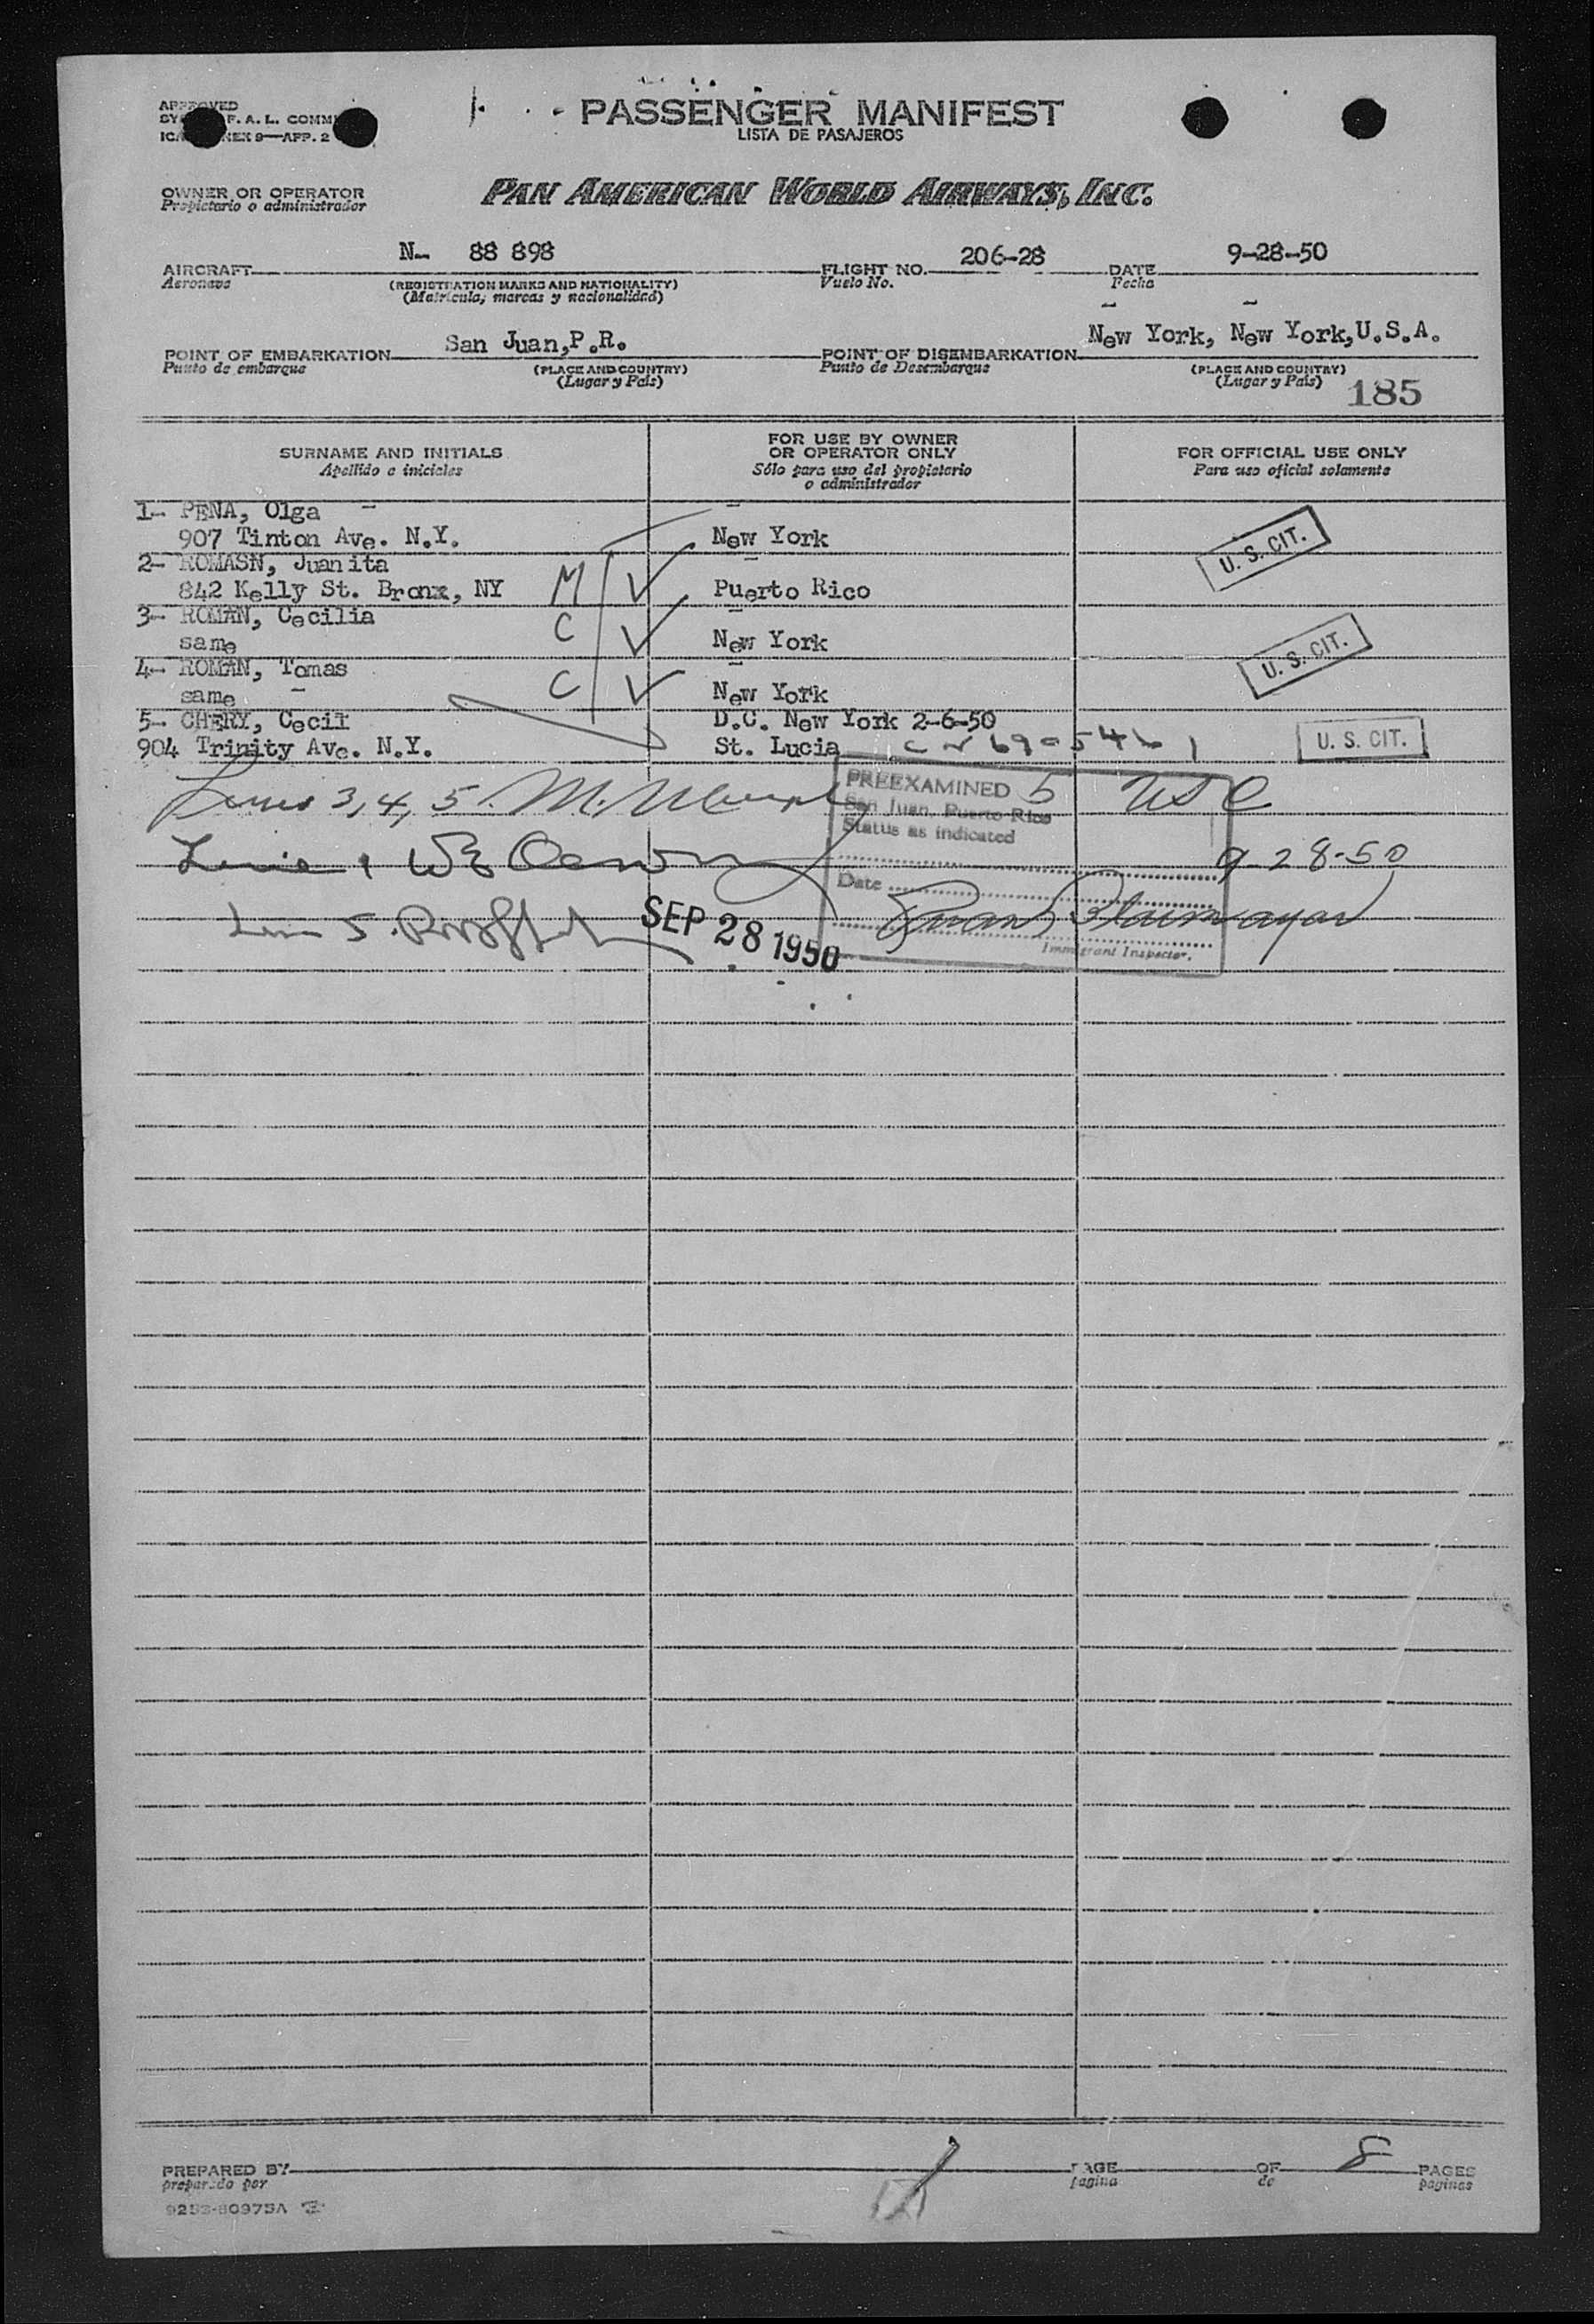 APPROVED
F. A. L. COMM
ANNEX 9—APP. 2
PASSENGER MANIFEST
LISTA DE PASAJEROS
OWNER OR OPERATOR
Propietario o administrador
PAN AMERICAN WORLD AIRWAYS, INC.
AIRCRAFT N- 88 898 FLIGHT NO. 206-28 DATE 9-28-50
Aeronave (REGISTRATION MARKS AND NATIONALITY) Vuelo No. Fecha
(Matrícula, marcas y nacionalidad)
POINT OF EMBARKATION San Juan,P.R. POINT OF DISEMBARKATION New York, New York,U.S.A.
Punto de embarque (PLACE AND COUNTRY) Punto de Desembarque (PLACE AND COUNTRY)
(Lugar y País) (Lugar y País) 185
SURNAME AND INITIALS FOR USE BY OWNER OR OPERATOR ONLY FOR OFFICIAL USE ONLY
Apellido e iniciales Sólo para uso del propietario o administrador Para uso oficial solamente
1- PENA, Olga
907 Tinton Ave. N.Y. New York U. S. CIT.
2- ROMASN, Juanita
842 Kelly St. Bronx, NY M Puerto Rico
3- ROMAN, Cecilia C
same New York U. S. CIT.
4- ROMAN, Tomas
same C New York
5- CHERY, Cecil D.C. New York 2-6-50
904 Trinity Ave. N.Y. St. Lucia U. S. CIT.
Lines 3, 4, 5. M.
PREEXAMINED 5 USC
San Juan, Puerto Rico
Status as indicated
9-28-50
Date
SEP 28 1950
Immigrant Inspector.
PREPARED BY PAGE OF 8 PAGES
preparado por pagina de paginas